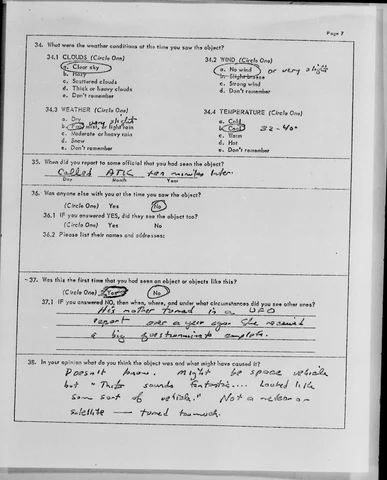 Page 7
34. What were the weather conditions at the time you saw the object?
34.1 CLOUDS (Circle One) 34.2 WIND (Circle One)
a. Clear sky a. No wind or very slight
b. Hazy b. Slight breeze
c. Scattered clouds c. Strong wind
d. Thick or heavy clouds d. Don't remember
e. Don't remember
34.3 WEATHER (Circle One) 34.4 TEMPERATURE (Circle One)
a. Dry very slight a. Cold
b. Fog, mist, or light rain b. Cool 32-40°
c. Moderate or heavy rain c. Warm
d. Snow d. Hot
e. Don't remember e. Don't remember
35. When did you report to some official that you had seen the object?
Called ATIC ten minutes later
Day Month Year
36. Was anyone else with you at the time you saw the object?
(Circle One) Yes No
36.1 IF you answered YES, did they see the object too?
(Circle One) Yes No
36.2 Please list their names and addresses:
37. Was this the first time that you had seen an object or objects like this?
(Circle One) Yes No
37.1 IF you answered NO, then when, where, and under what circumstances did you see other ones?
His mother turned in a UFO
report over a year ago. She received
a big questionnaire to complete.
38. In your opinion what do you think the object was and what might have caused it?
Doesn't know. Might be space vehicle
but "This sounds fantastic.... Looked like
some sort of vehicle." Not a meteor or
satellite — turned too much.